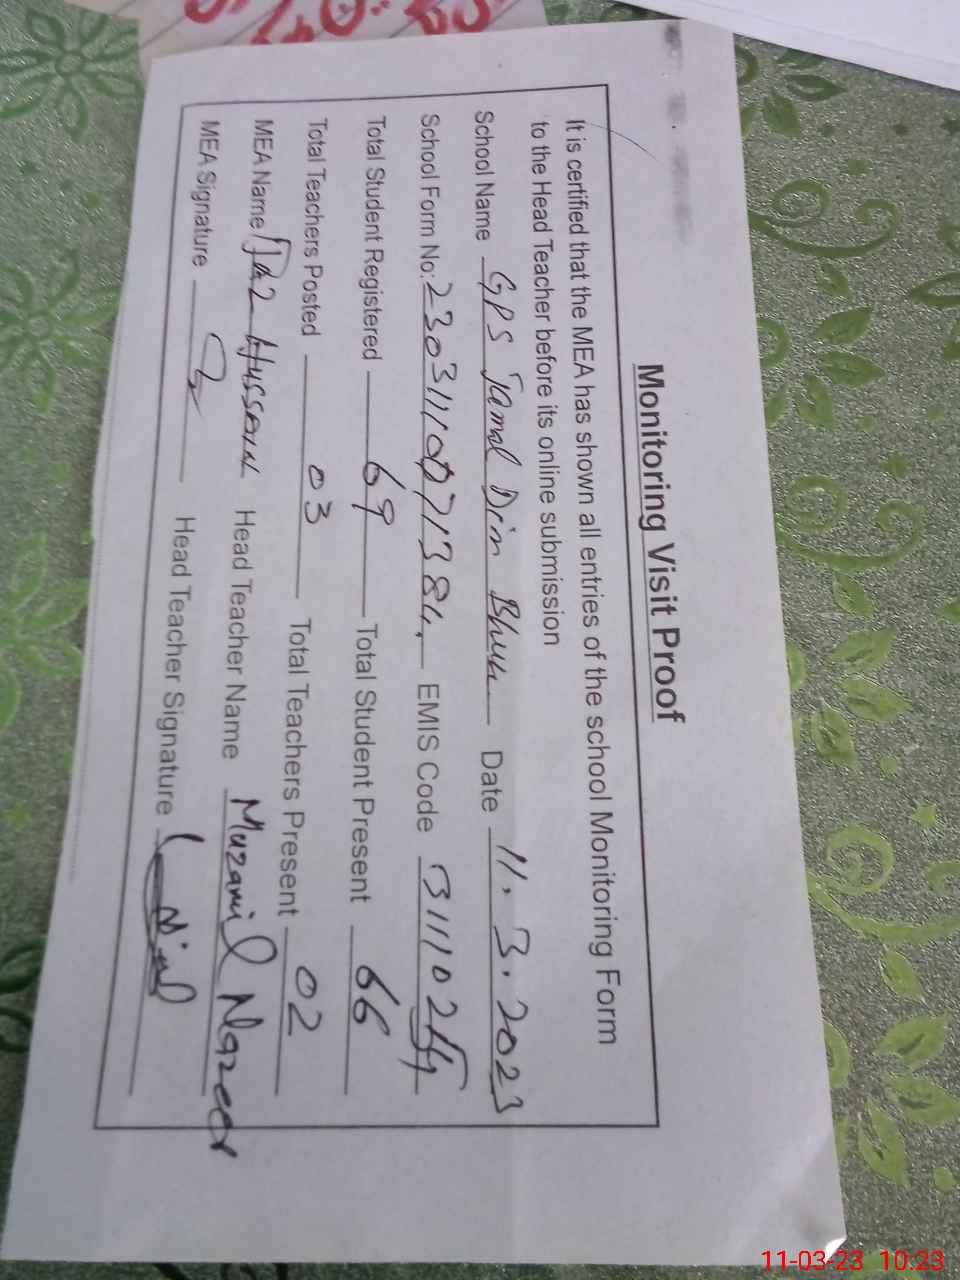 Monitoring Visit Proof
It is certified that the MEA has shown all entries of the school Monitoring Form
to the Head Teacher before its online submission
School Name GPS Jamal Din Date 11.3.2023
School Form No: EMIS Code
Total Student Registered 69 Total Student Present 66
Total Teachers Posted 03 Total Teachers Present 02
MEA Name Hussain Head Teacher Name Muzamil Nazeer
MEA Signature Head Teacher Signature
11-03-23 10:23